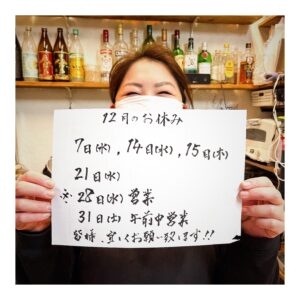 12月のお休み
7日(水)、14日(水)、15日(木)
21日(水)
※28日(水)営業
31日(土)午前中営業
皆様、宜しくお願い致します!!